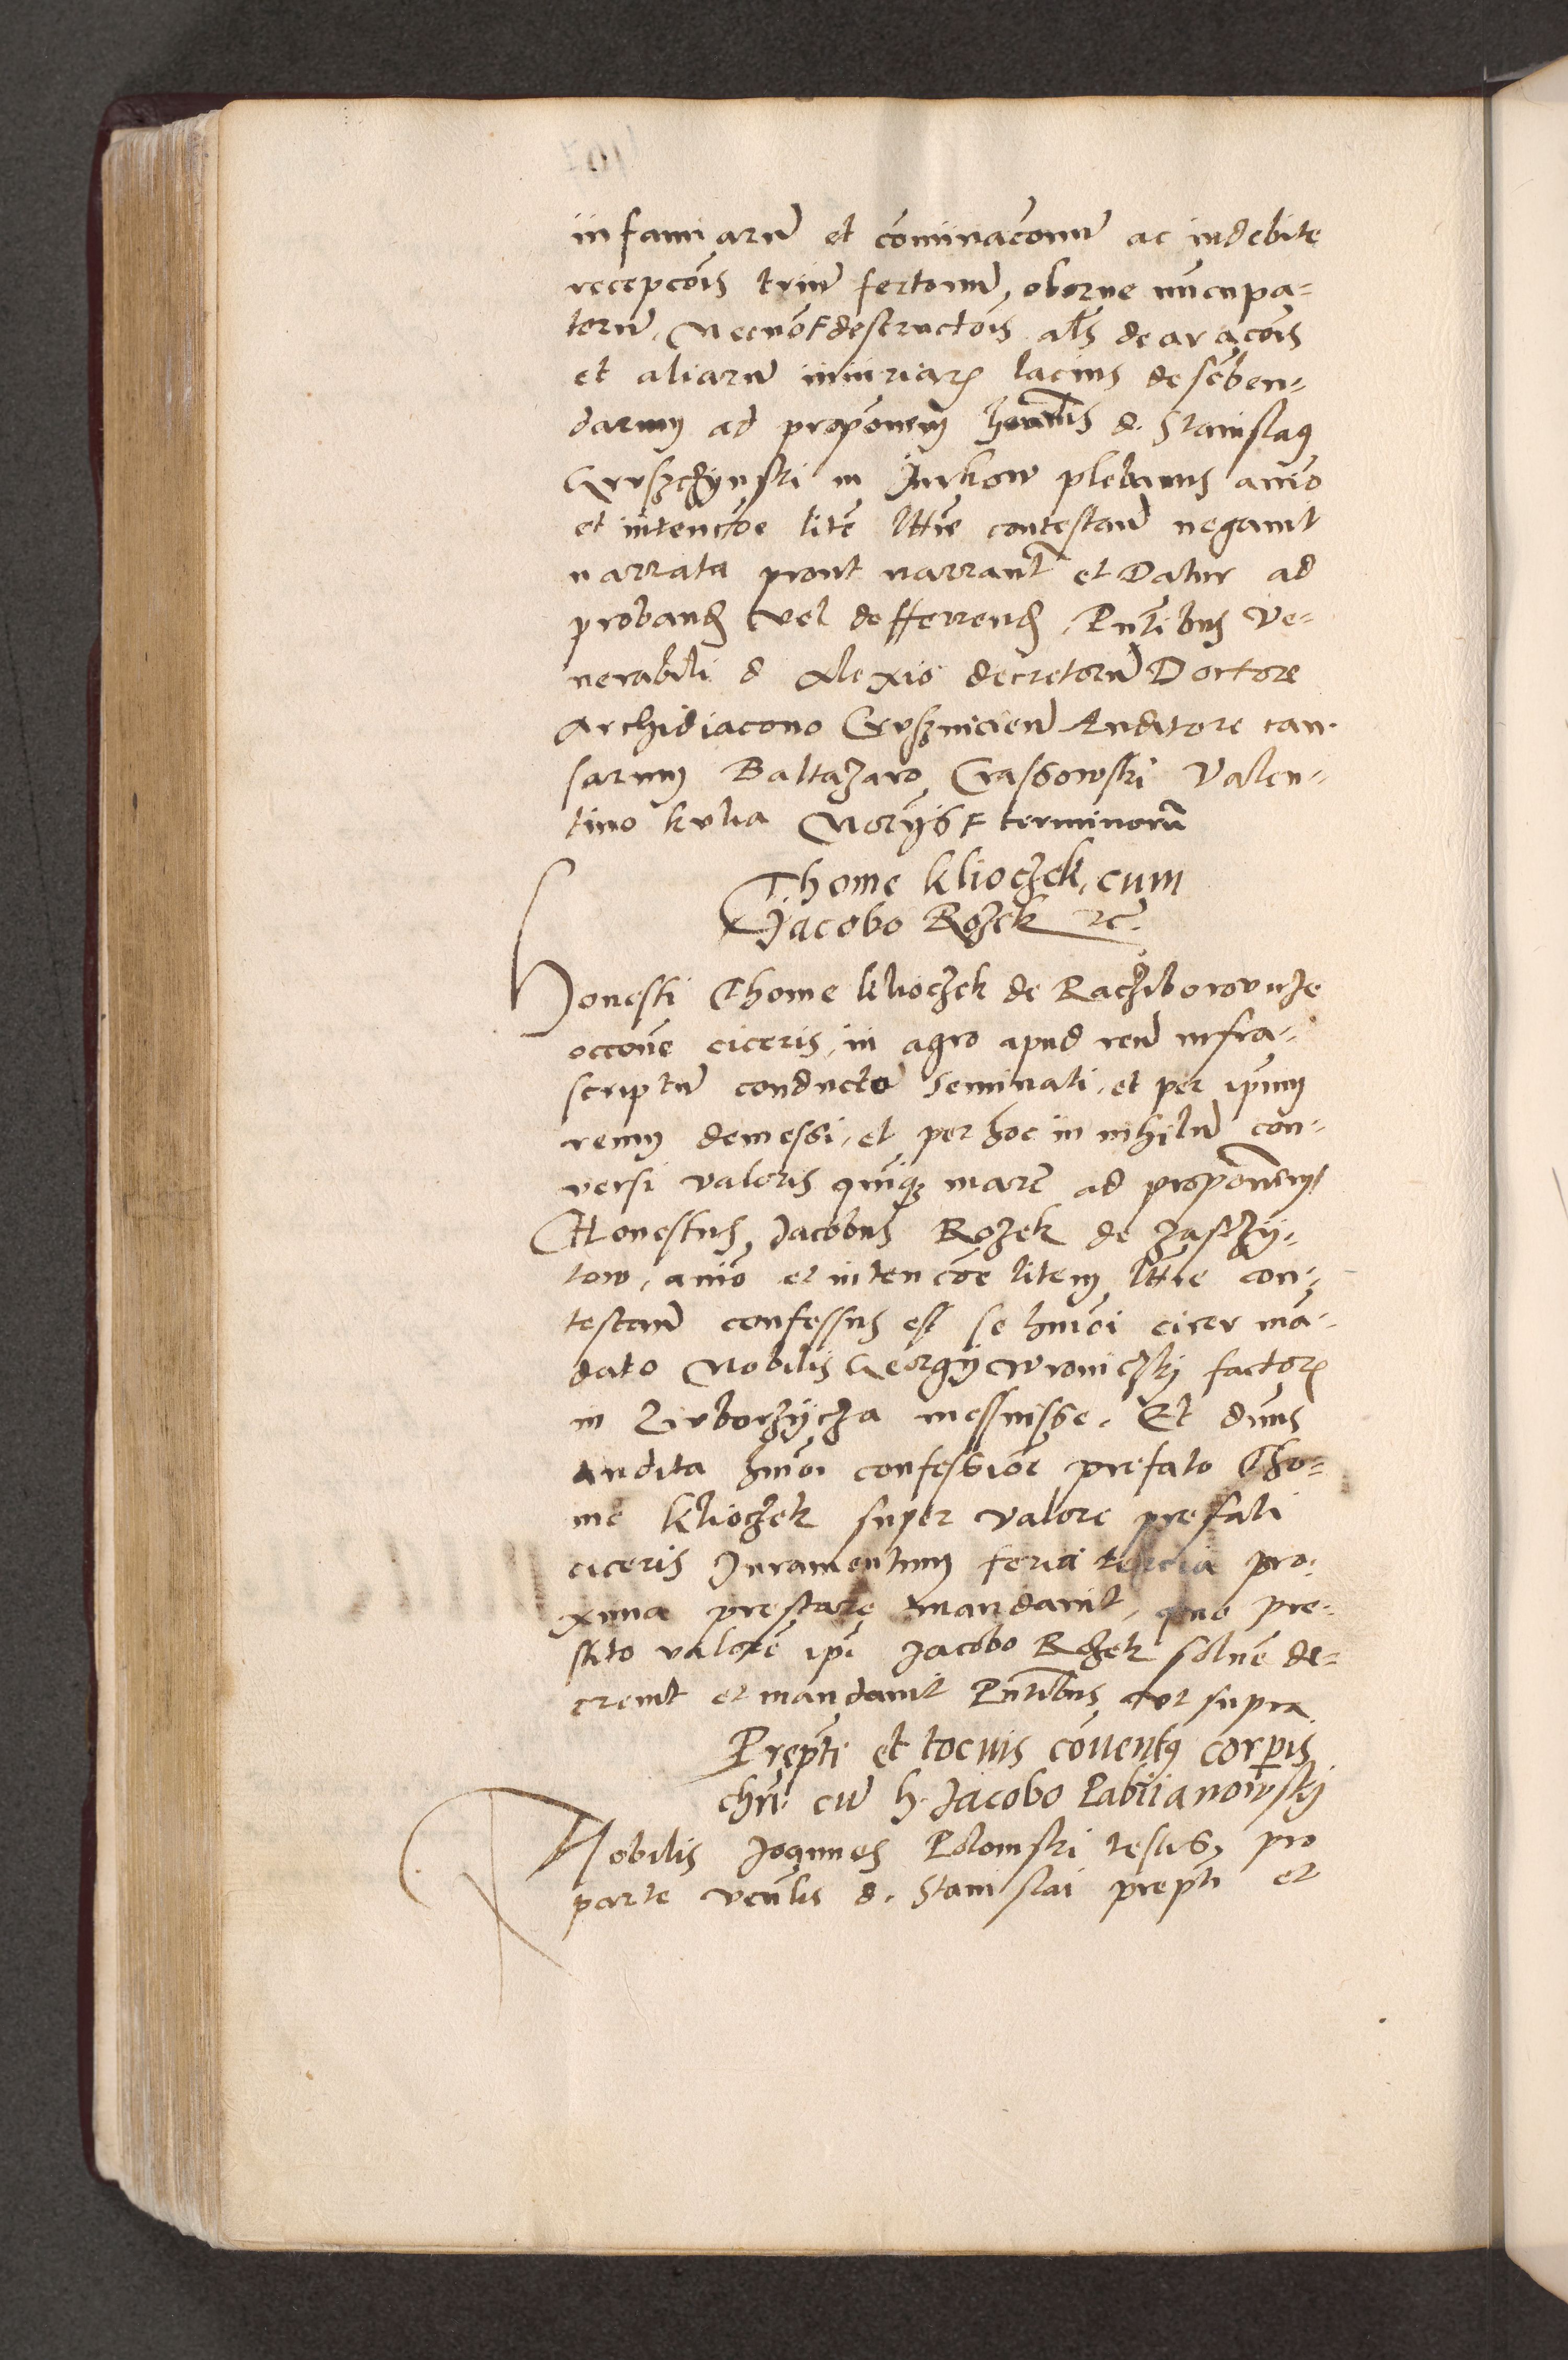 infamiarū et cominacionū ac indebite
recepcois trium fertonū, oborne nuncupa-
torū, Necno destructois als de aracois
et aliarū iniuriarꝫ lacius describen-
darum ad proponem honrlis d. Stanislaꝰ
Gruszczynski in Jurkow plebanus animo
et intencioe litē lttīe contestand negavit
narrata prout narrant et Datur ad
proband vel defferrend, Pntibus ve-
nerabili d Alexio decretorū Doctore
Archidiacono Auditore cau-
sarum Baltazaro Crassowski Valen-
tino kulia Norijs terminorū
Thome Klioczek, cum
Jacobo Rozek ꝛc.
Honesti Thome Klioczek de Racziborovicze
occone ciceris, in agro apud reū infra-
scriptū conducto seminati, et per ipm
reum demessi, et per hoc in nihilū con-
versi valoris quinqꝫ marc ad proponem
Honestus Jacobus Rozek de
tow, animo et intencoe litem lttīe con-
testand confessus est se hmoi cicer ma-
dato Nobilis Georgij Wroniczkij factorꝫ
in messuisse. Et dnus
audita hmoi confessioe prefato Tho-
me Klioczek super valore prefati
ciceris Juramentum feria tercia pro-
xima prestare mandavit, quo pre-
stito valorē ipi Jacobo Rozek solvē de-
crevit et mandavit Pntibus ut supra
Prepti et tocius coventꝰ corpis
chri cū h. Jacobo Pabiianowskij
Nobilis Joannes Polomski testis, pro
parte venlis d. Stanislai prepti et